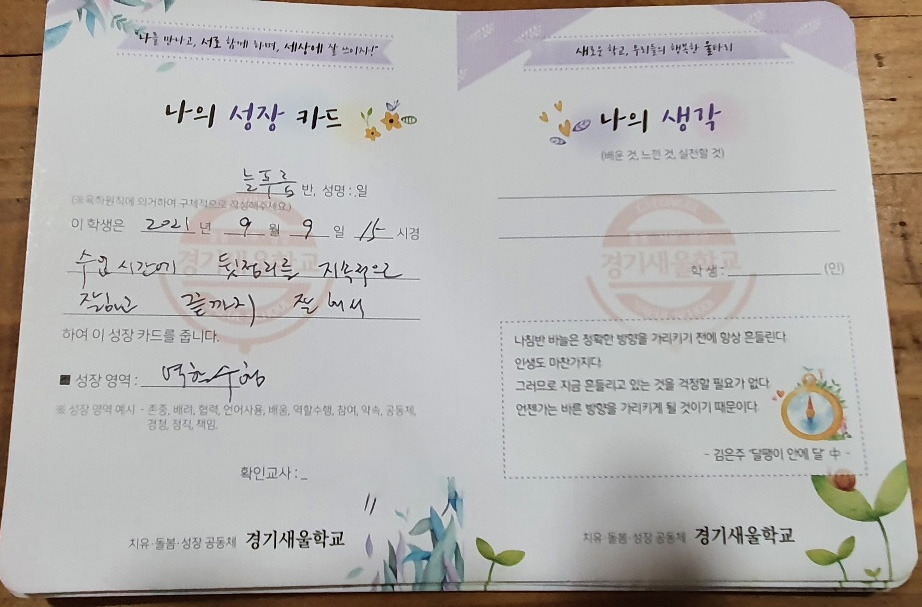 "나를 만나고, 서로 함께 하며, 세상에 잘 쓰이자!"
나의 성장 카드
늘푸른 반, 성명 : 일
(※육하원칙에 의거하여 구체적으로 작성해주세요.)
이 학생은 2021 년 9 월 9 일 15 시경
수업 시간에 뒷정리를 지속적으로
잘하고 끝까지 잘 해서
하여 이 성장 카드를 줍니다.
■ 성장 영역 : 역할수행
※ 성장 영역 예시 - 존중, 배려, 협력, 언어사용, 배움, 역할수행, 참여, 약속, 공동체,
경청, 정직, 책임.
확인교사 :
치유·돌봄·성장 공동체 경기새울학교
새로운 학교, 우리들의 행복한 울타리
나의 생각
(배운 것, 느낀 것, 실천할 것)
경기새울학교
학생 : (인)
나침반 바늘은 정확한 방향을 가리키기 전에 항상 흔들린다
인생도 마찬가지다
그러므로 지금 흔들리고 있는 것을 걱정할 필요가 없다
언젠가는 바른 방향을 가리키게 될 것이기 때문이다
- 김은주 '달팽이 안에 달' 中 -
치유·돌봄·성장 공동체 경기새울학교